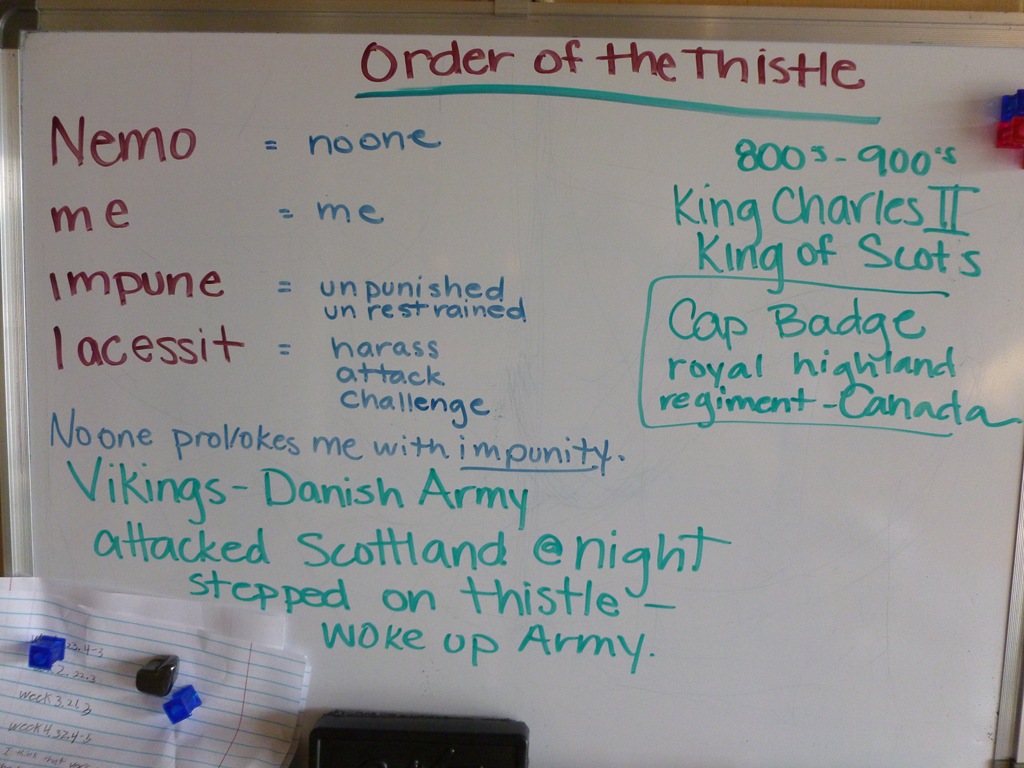 Order of the Thistle
Nemo = no one
me = me
impune = unpunished
unrestrained
lacessit = harass
attack
challenge
No one provokes me with impunity.
800's - 900's
King Charles II
King of Scots
Cap Badge
royal highland
regiment - Canada
Vikings - Danish Army
attacked Scottland @ night
stepped on thistle -
woke up Army.
week 3, 21.3
week 4, 32.4-5